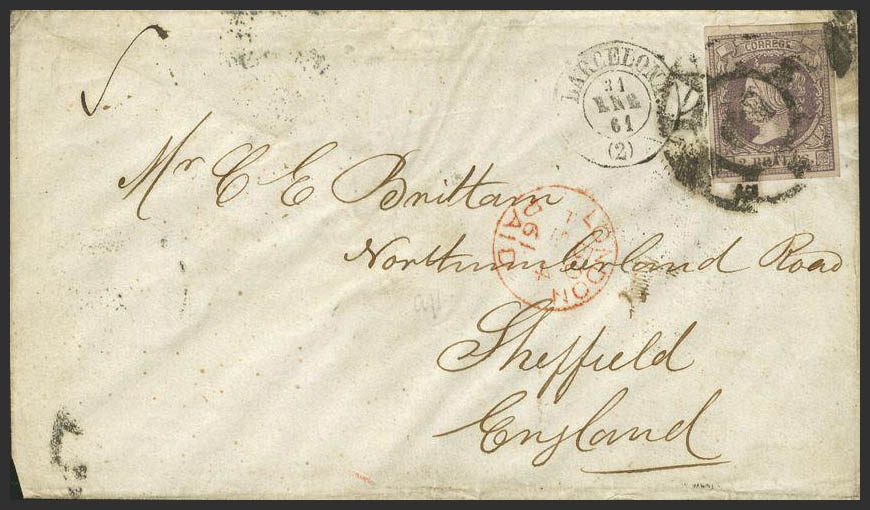 BARCELONA
31
ENE
61
(2)
CORREOS
2 REALES
Mr C E Brittain
Northumberland Road
Sheffield
England
LONDON
PAID